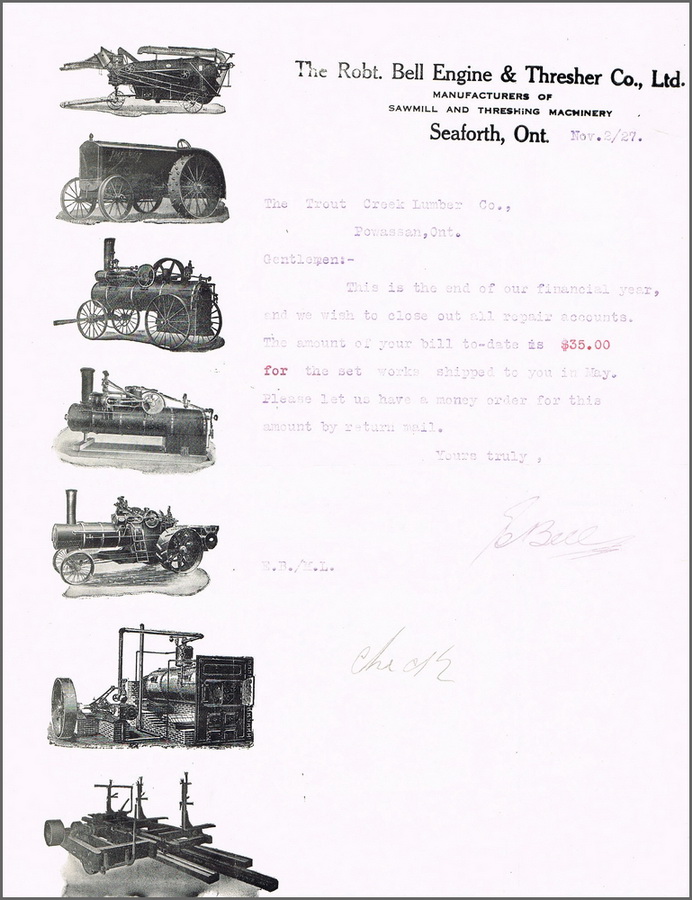 The Robt. Bell Engine & Thresher Co., Ltd.
MANUFACTURERS OF
SAWMILL AND THRESHING MACHINERY
Seaforth, Ont. Nov.2/27.
The Trout Creek Lumber Co.,
Powassan,Ont.
Gentlemen:-
This is the end of our financial year,
and we wish to close out all repair accounts.
The amount of your bill to-date is $35.00
for the set works shipped to you in May.
Please let us have a money order for this
amount by return mail.
Yours truly ,
E Bell
E.B./M.L.
check